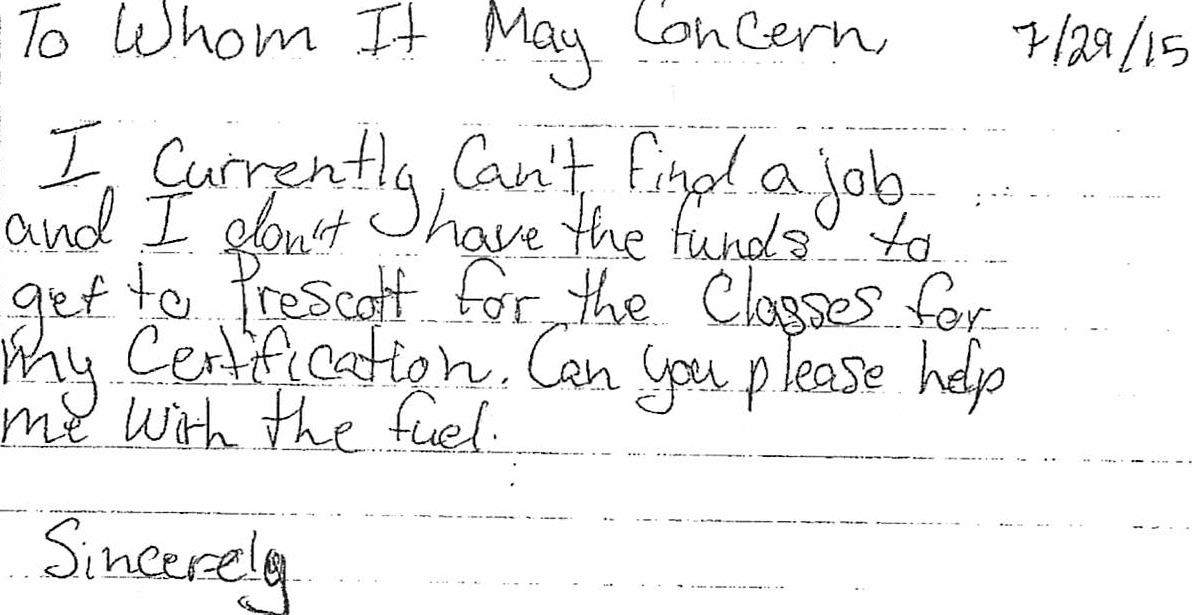 To Whom It May Concern, 7/29/15
I Currently Can't find a job
and I don't have the funds to
get to Prescott for the Classes for
my Certification. Can you please help
me with the fuel.
Sincerely